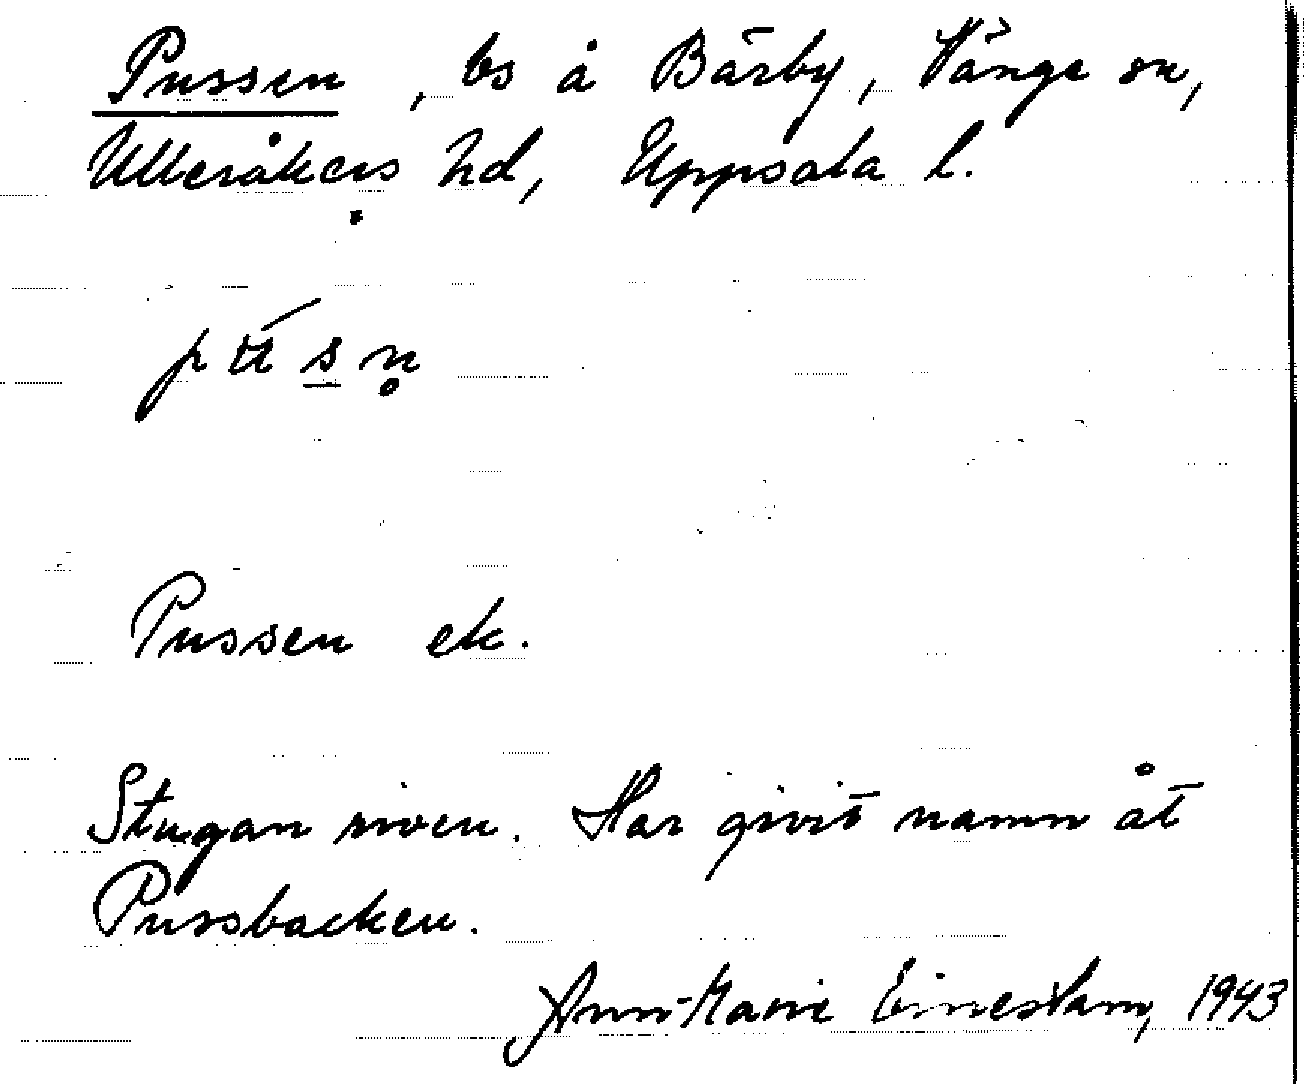 Pussen, bs å Bärby, Vänge sn,
Ulleråkers hd, Uppsala l.
Pussen ek.
Stugan riven. Har givit namn åt
Pussbacken.
Ann-Marie 1943